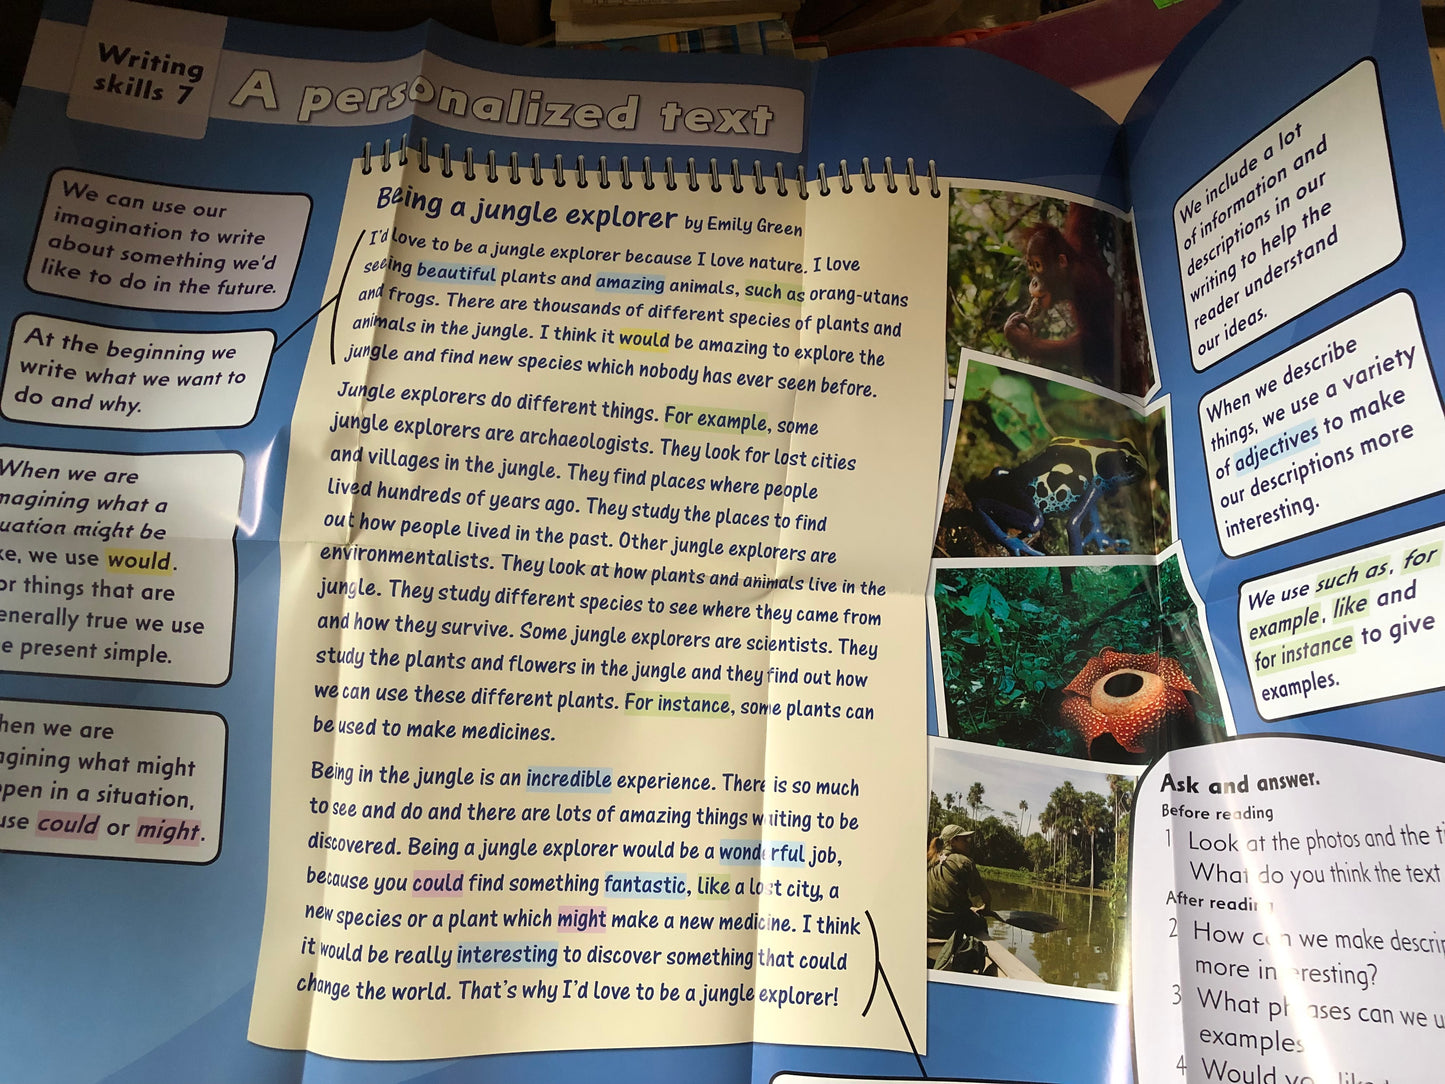 Writing
skills 7
A personalized text
We can use our
imagination to write
about something we'd
like to do in the future.
At the beginning we
write what we want to
do and why.
When we are
imagining what a
situation might be
like, we use would.
For things that are
generally true we use
the present simple.
When we are
imagining what might
happen in a situation,
use could or might.
Being a jungle explorer by Emily Green
I'd love to be a jungle explorer because I love nature. I love
seeing beautiful plants and amazing animals, such as orang-utans
and frogs. There are thousands of different species of plants and
animals in the jungle. I think it would be amazing to explore the
jungle and find new species which nobody has ever seen before.
Jungle explorers do different things. For example, some
jungle explorers are archaeologists. They look for lost cities
and villages in the jungle. They find places where people
lived hundreds of years ago. They study the places to find
out how people lived in the past. Other jungle explorers are
environmentalists. They look at how plants and animals live in the
jungle. They study different species to see where they came from
and how they survive. Some jungle explorers are scientists. They
study the plants and flowers in the jungle and they find out how
we can use these different plants. For instance, some plants can
be used to make medicines.
Being in the jungle is an incredible experience. There is so much
to see and do and there are lots of amazing things waiting to be
discovered. Being a jungle explorer would be a wonderful job,
because you could find something fantastic, like a lost city, a
new species or a plant which might make a new medicine. I think
it would be really interesting to discover something that could
change the world. That's why I'd love to be a jungle explorer!
We include a lot
of information and
descriptions in our
writing to help the
reader understand
our ideas.
When we describe
things, we use a variety
of adjectives to make
our descriptions more
interesting.
We use such as, for
example, like and
for instance to give
examples.
Ask and answer.
Before reading
1 Look at the photos and the
What do you think the text
After reading
2 How can we make
more interesting?
3 What phrases can we
examples
4 Would